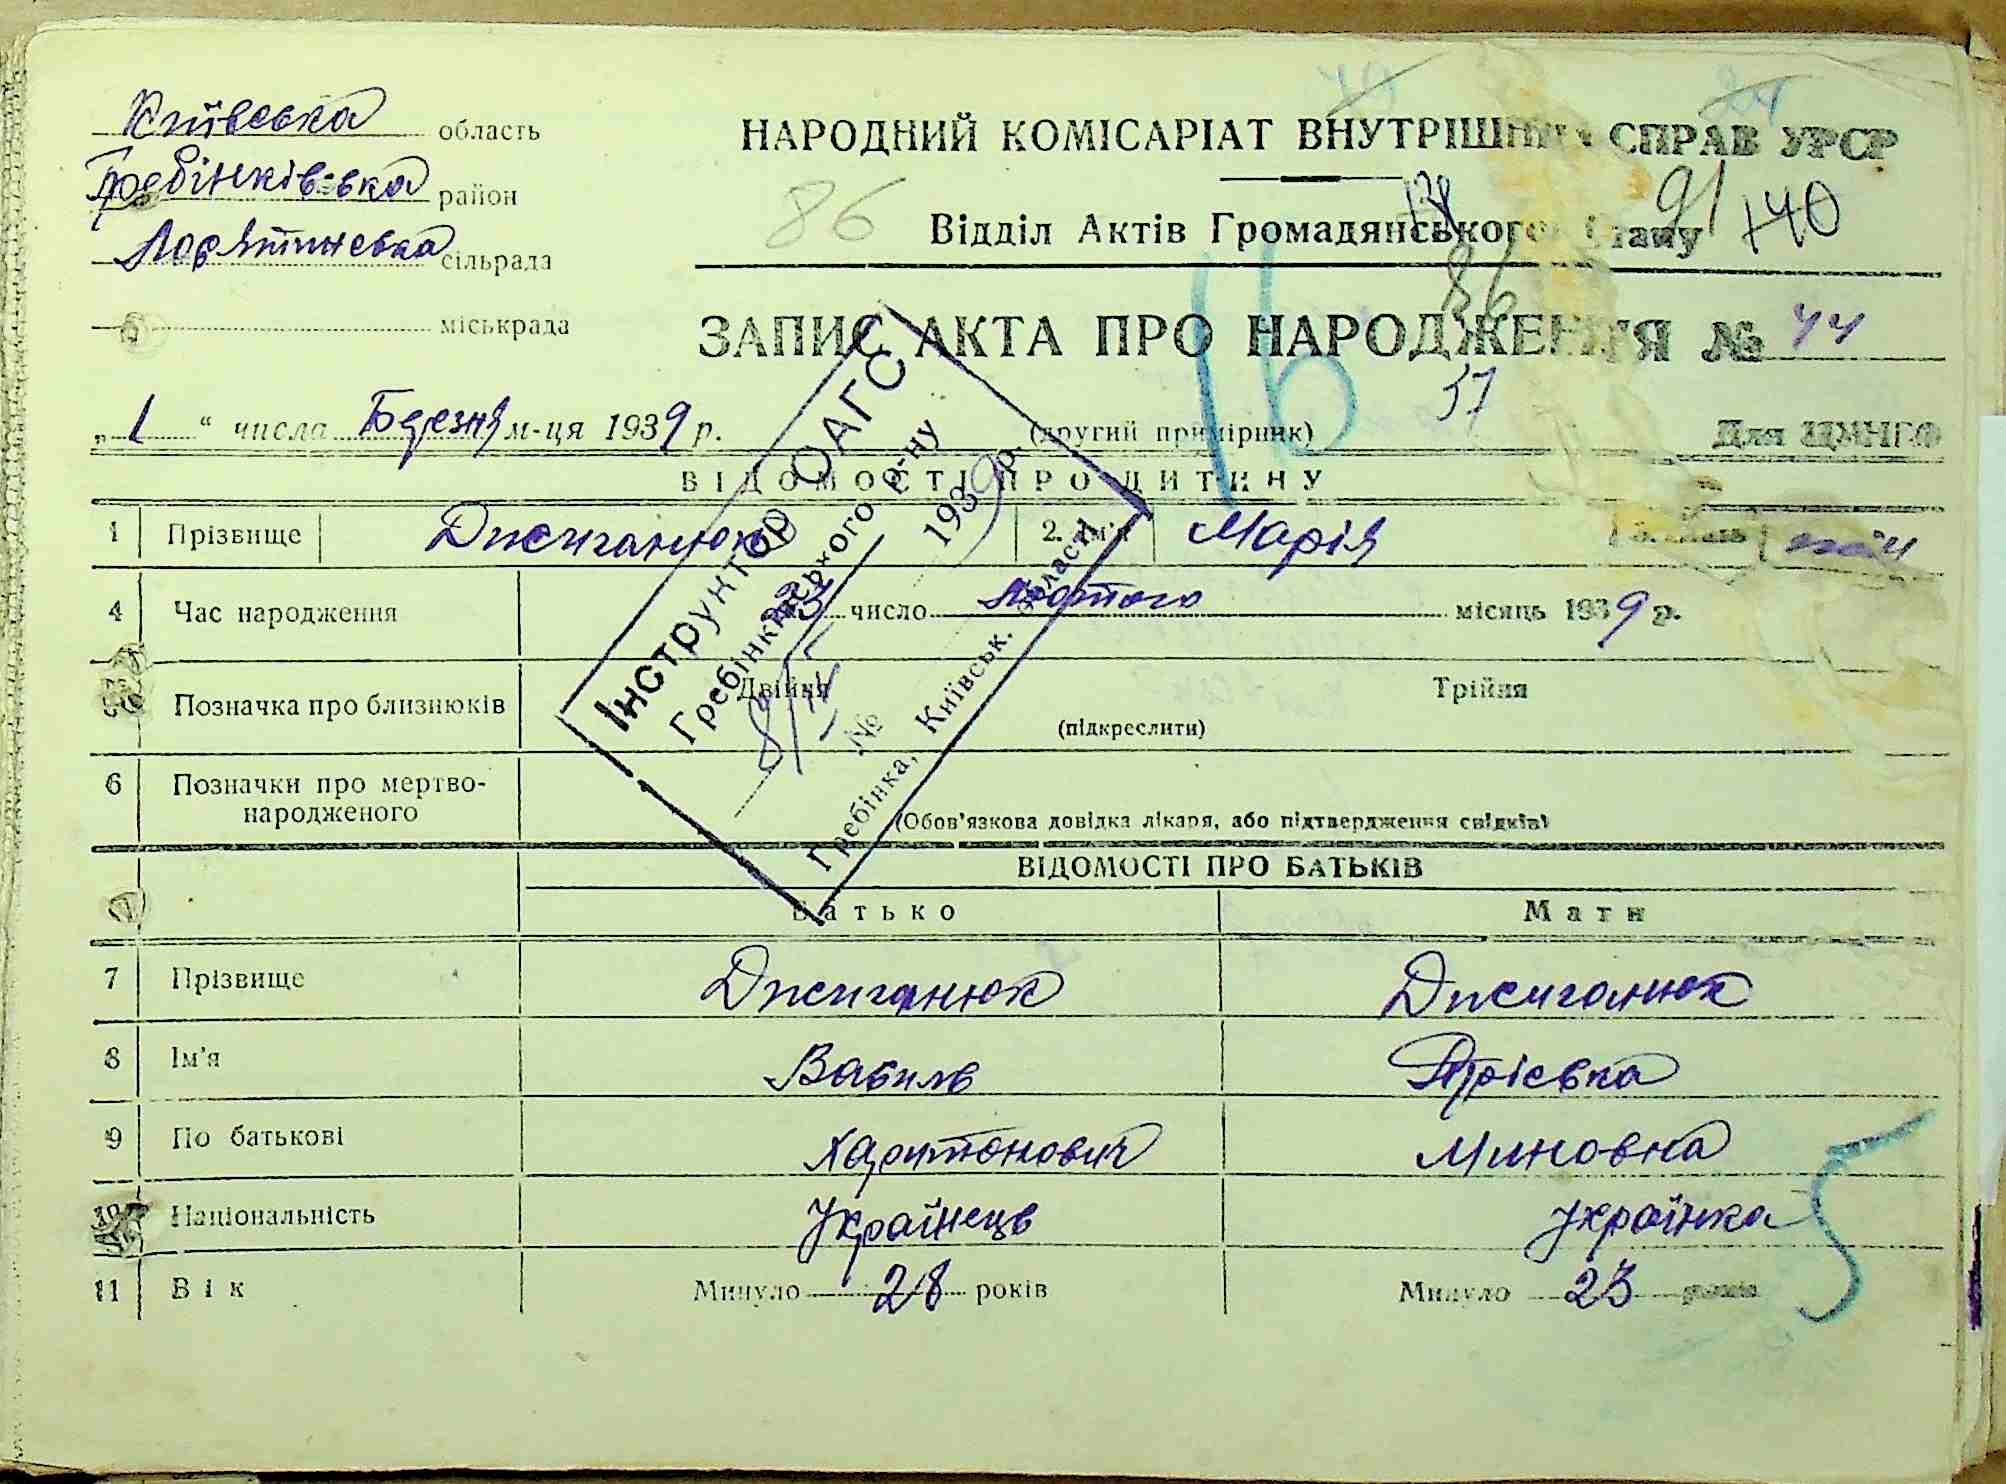 Київська область
Гребінківська район
сільрада
міськрада
НАРОДНИЙ КОМІСАРІАТ ВНУТРІШНІХ СПРАВ УРСР
86
91
140
Відділ Актів Громадянського Стану
86
16
ЗАПИС АКТА ПРО НАРОДЖЕННЯ № 44
37
„1“ числа Березня м-ця 1939 р.
(другий примірник)
Для ЦУНГО
ВІДОМОСТІ ПРО ДИТИНУ
1 Прізвище Джиганюк 2. Ім'я Марія 3. Стать
4 Час народження 23 число Лютого місяць 1939 р.
Позначка про близнюків Двійня Трійня
(підкреслити)
6 Позначки про мертво-
народженого
(Обов'язкова довідка лікаря, або підтвердження свідків)
Інструктор ОАГС
Гребінківського р-ну
1939 р.
№
Гребінка, Київськ. області
ВІДОМОСТІ ПРО БАТЬКІВ
Батько Мати
7 Прізвище Джиганюк Джиганюк
8 Ім'я Василь
9 По батькові Харитонович Миновна
10 Національність Українець Українка
11 Вік Минуло 28 років Минуло 23 років
5